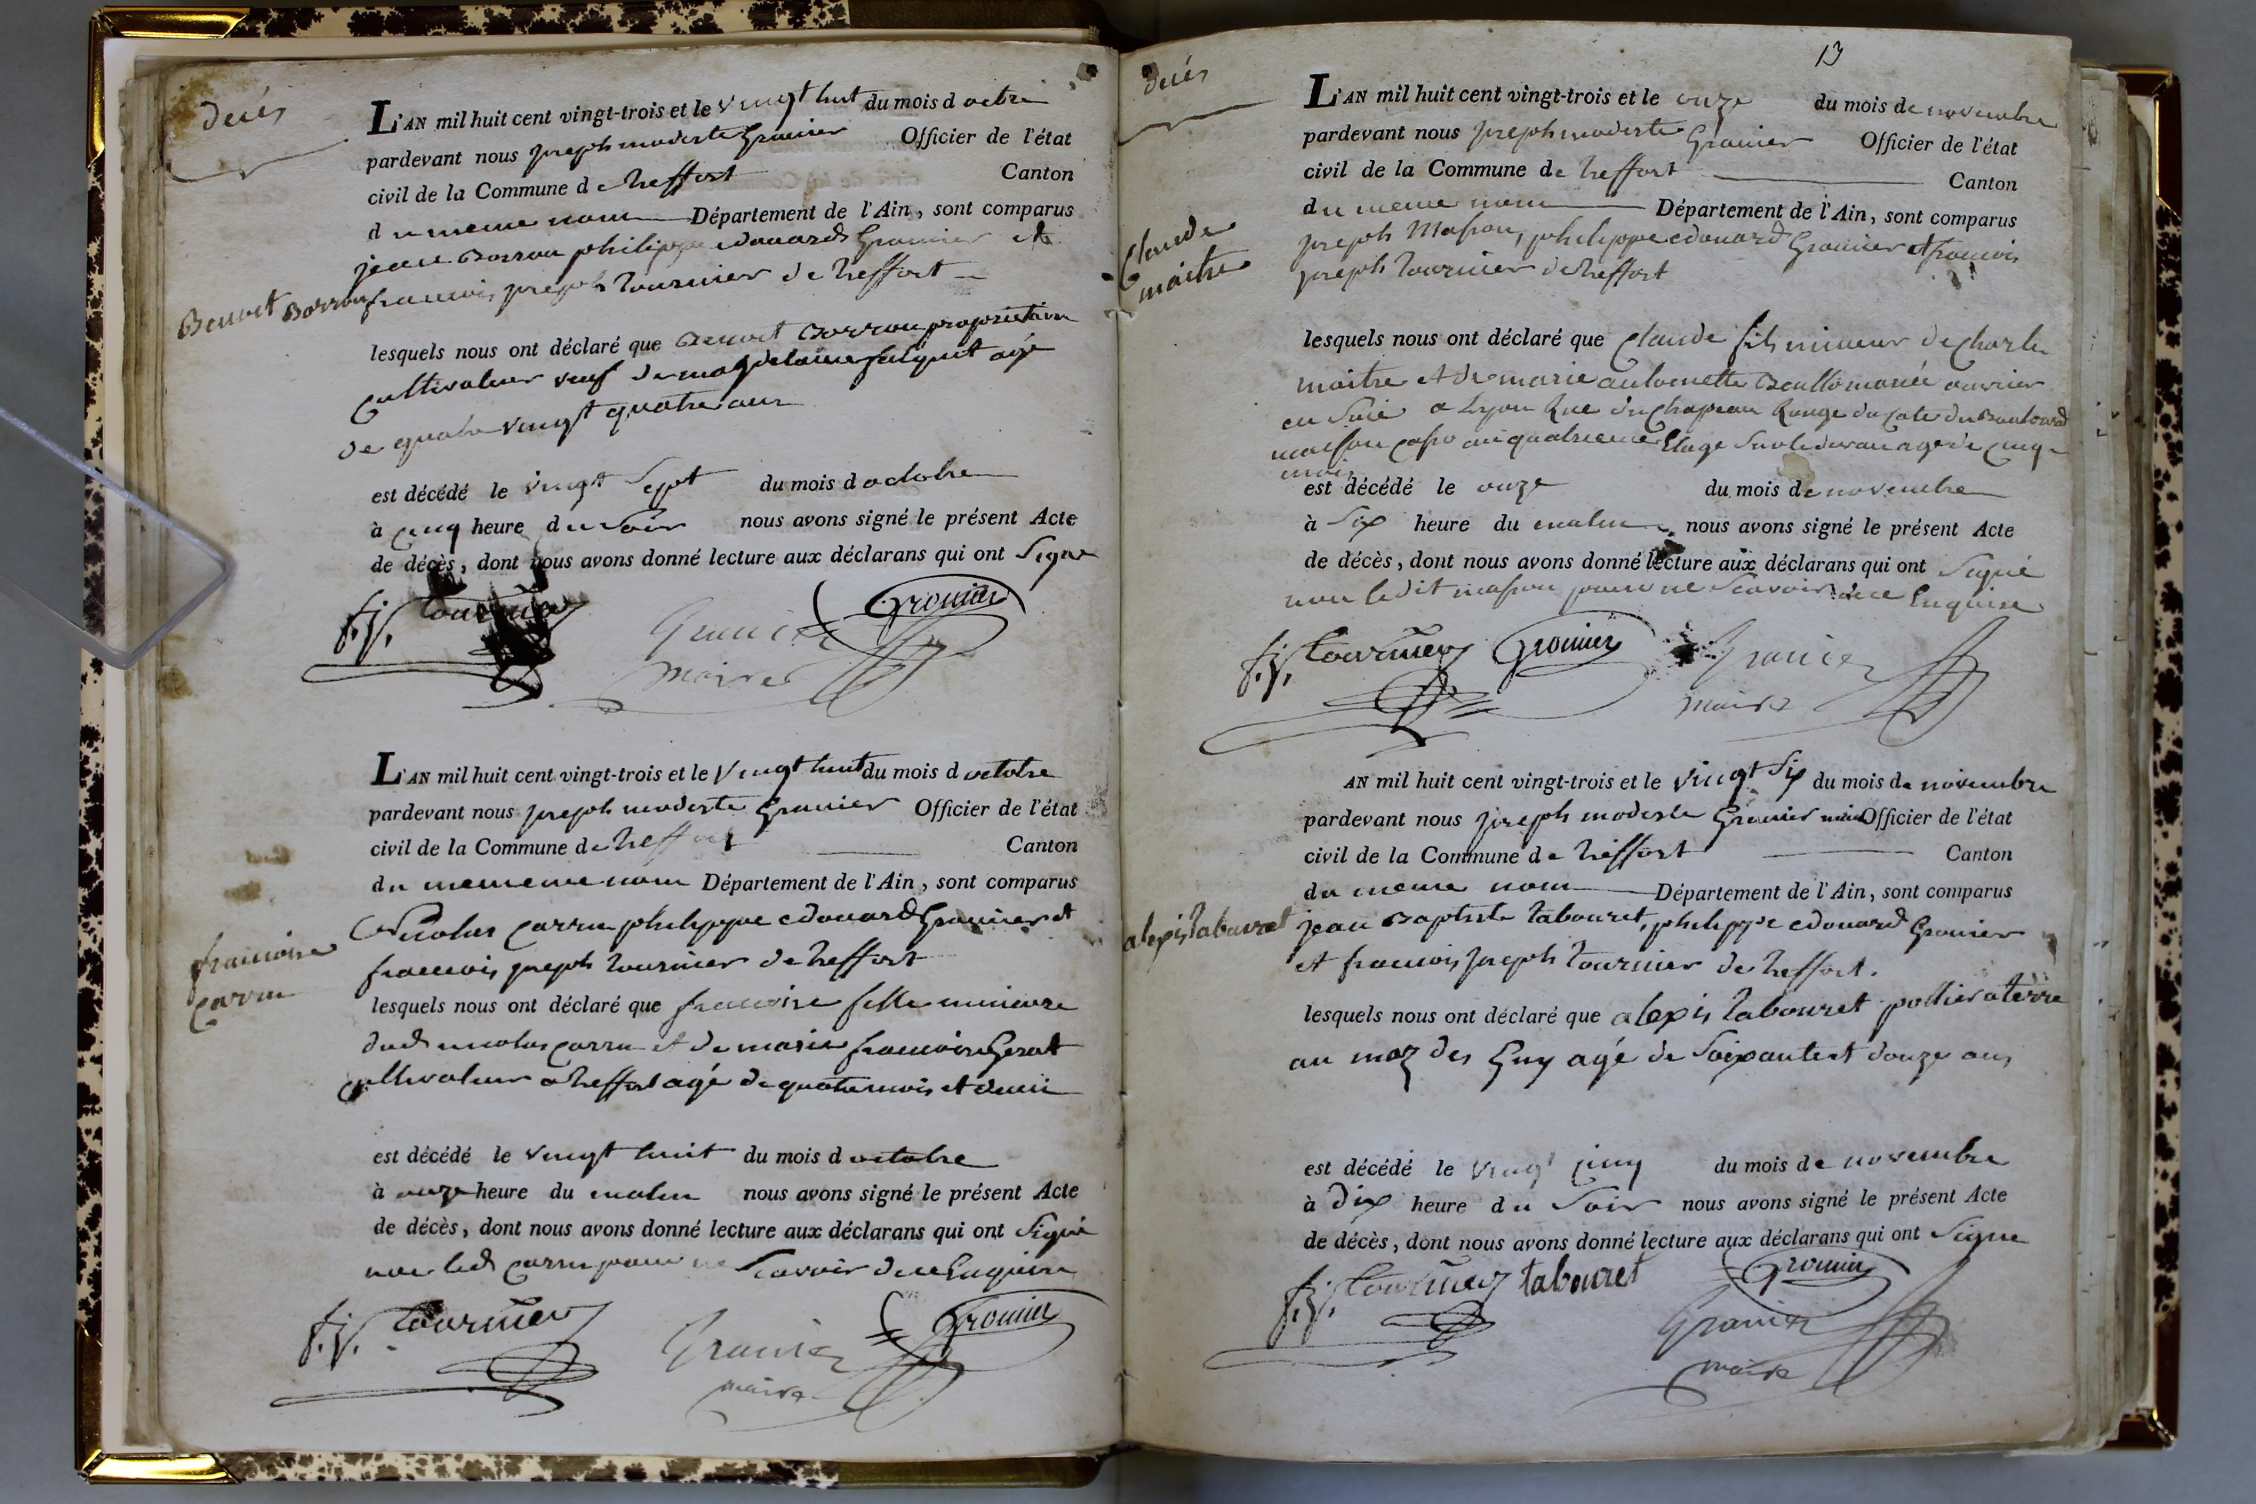 decés
L'AN mil huit cent vingt-trois et le vingt huit du mois d octbre
pardevant nous joseph modeste Gromier Officier de l'état
civil de la Commune de treffort Canton
du meme nom Département de l'Ain, sont comparus
jean Borron philippe edouard Gromier et
Benoit Borron
francois joseph tournier de treffort
lesquels nous ont déclaré que Benoit Borron proprietaire
Cultivateur veuf de magdelaine agé
de quatre vingt quatre ans
est décédé le vingt Sept du mois d octobre
à cinq heure du Soir nous avons signé le présent Acte
de décès, dont nous avons donné lecture aux déclarans qui ont Signe
f. j. tournier Gromier Gromier
maire
L'AN mil huit cent vingt-trois et le vingt huit du mois d octobre
pardevant nous joseph modeste Gromier Officier de l'état
civil de la Commune de treffort Canton
du mememe nom Département de l'Ain, sont comparus
Nicolas carru philippe edouard Gromier et
francoise
carru
francois joseph tournier de treffort
lesquels nous ont déclaré que francoise fille mineure
dud nicolas carru et de marie francoise
cultivateur a treffort agé de quatre mois et demi
est décédé le vingt huit du mois d octobre
à onze heure du matin nous avons signé le présent Acte
de décès, dont nous avons donné lecture aux déclarans qui ont Signé
non led carru pour ne Scavoir de ce Enquis
f. j. tournier Gromier Gromier
maire
13
decés
L'AN mil huit cent vingt-trois et le onze du mois de novembre
pardevant nous joseph modeste Gromier Officier de l'état
civil de la Commune de treffort Canton
du meme nom Département de l'Ain, sont comparus
Claude
maitre
joseph Masson, philippe edouard Gromier et francois
joseph tournier de treffort
lesquels nous ont déclaré que Claude fils mineur de Charle
maitre et de marie antoinette ouvrier
en Soie a Lyon Rue du Chapeau Rouge du Cote du
maison au quatrieme Etage Sur le devan agé de cinq
mois
est décédé le onze du mois de novembre
à Six heure du matin nous avons signé le présent Acte
de décès, dont nous avons donné lecture aux déclarans qui ont Signé
non ledit masson pour ne Scavoir de ce Enquis
f. j. tournier Gromier Gromier
maire
AN mil huit cent vingt-trois et le vingt Six du mois de novembre
pardevant nous joseph modeste Gromier maire Officier de l'état
civil de la Commune de treffort Canton
du meme nom Département de l'Ain, sont comparus
alexis tabouret
jean Baptiste tabouret, philippe edouard Gromier
et francois joseph tournier de treffort.
lesquels nous ont déclaré que alexis tabouret pottier a terre
au maz des Guy agé de Soixante et douze ans
est décédé le vingt cinq du mois de novembre
à Dix heure du Soir nous avons signé le présent Acte
de décès, dont nous avons donné lecture aux déclarans qui ont Signe
f. j. tournier tabouret Gromier
Gromier
maire